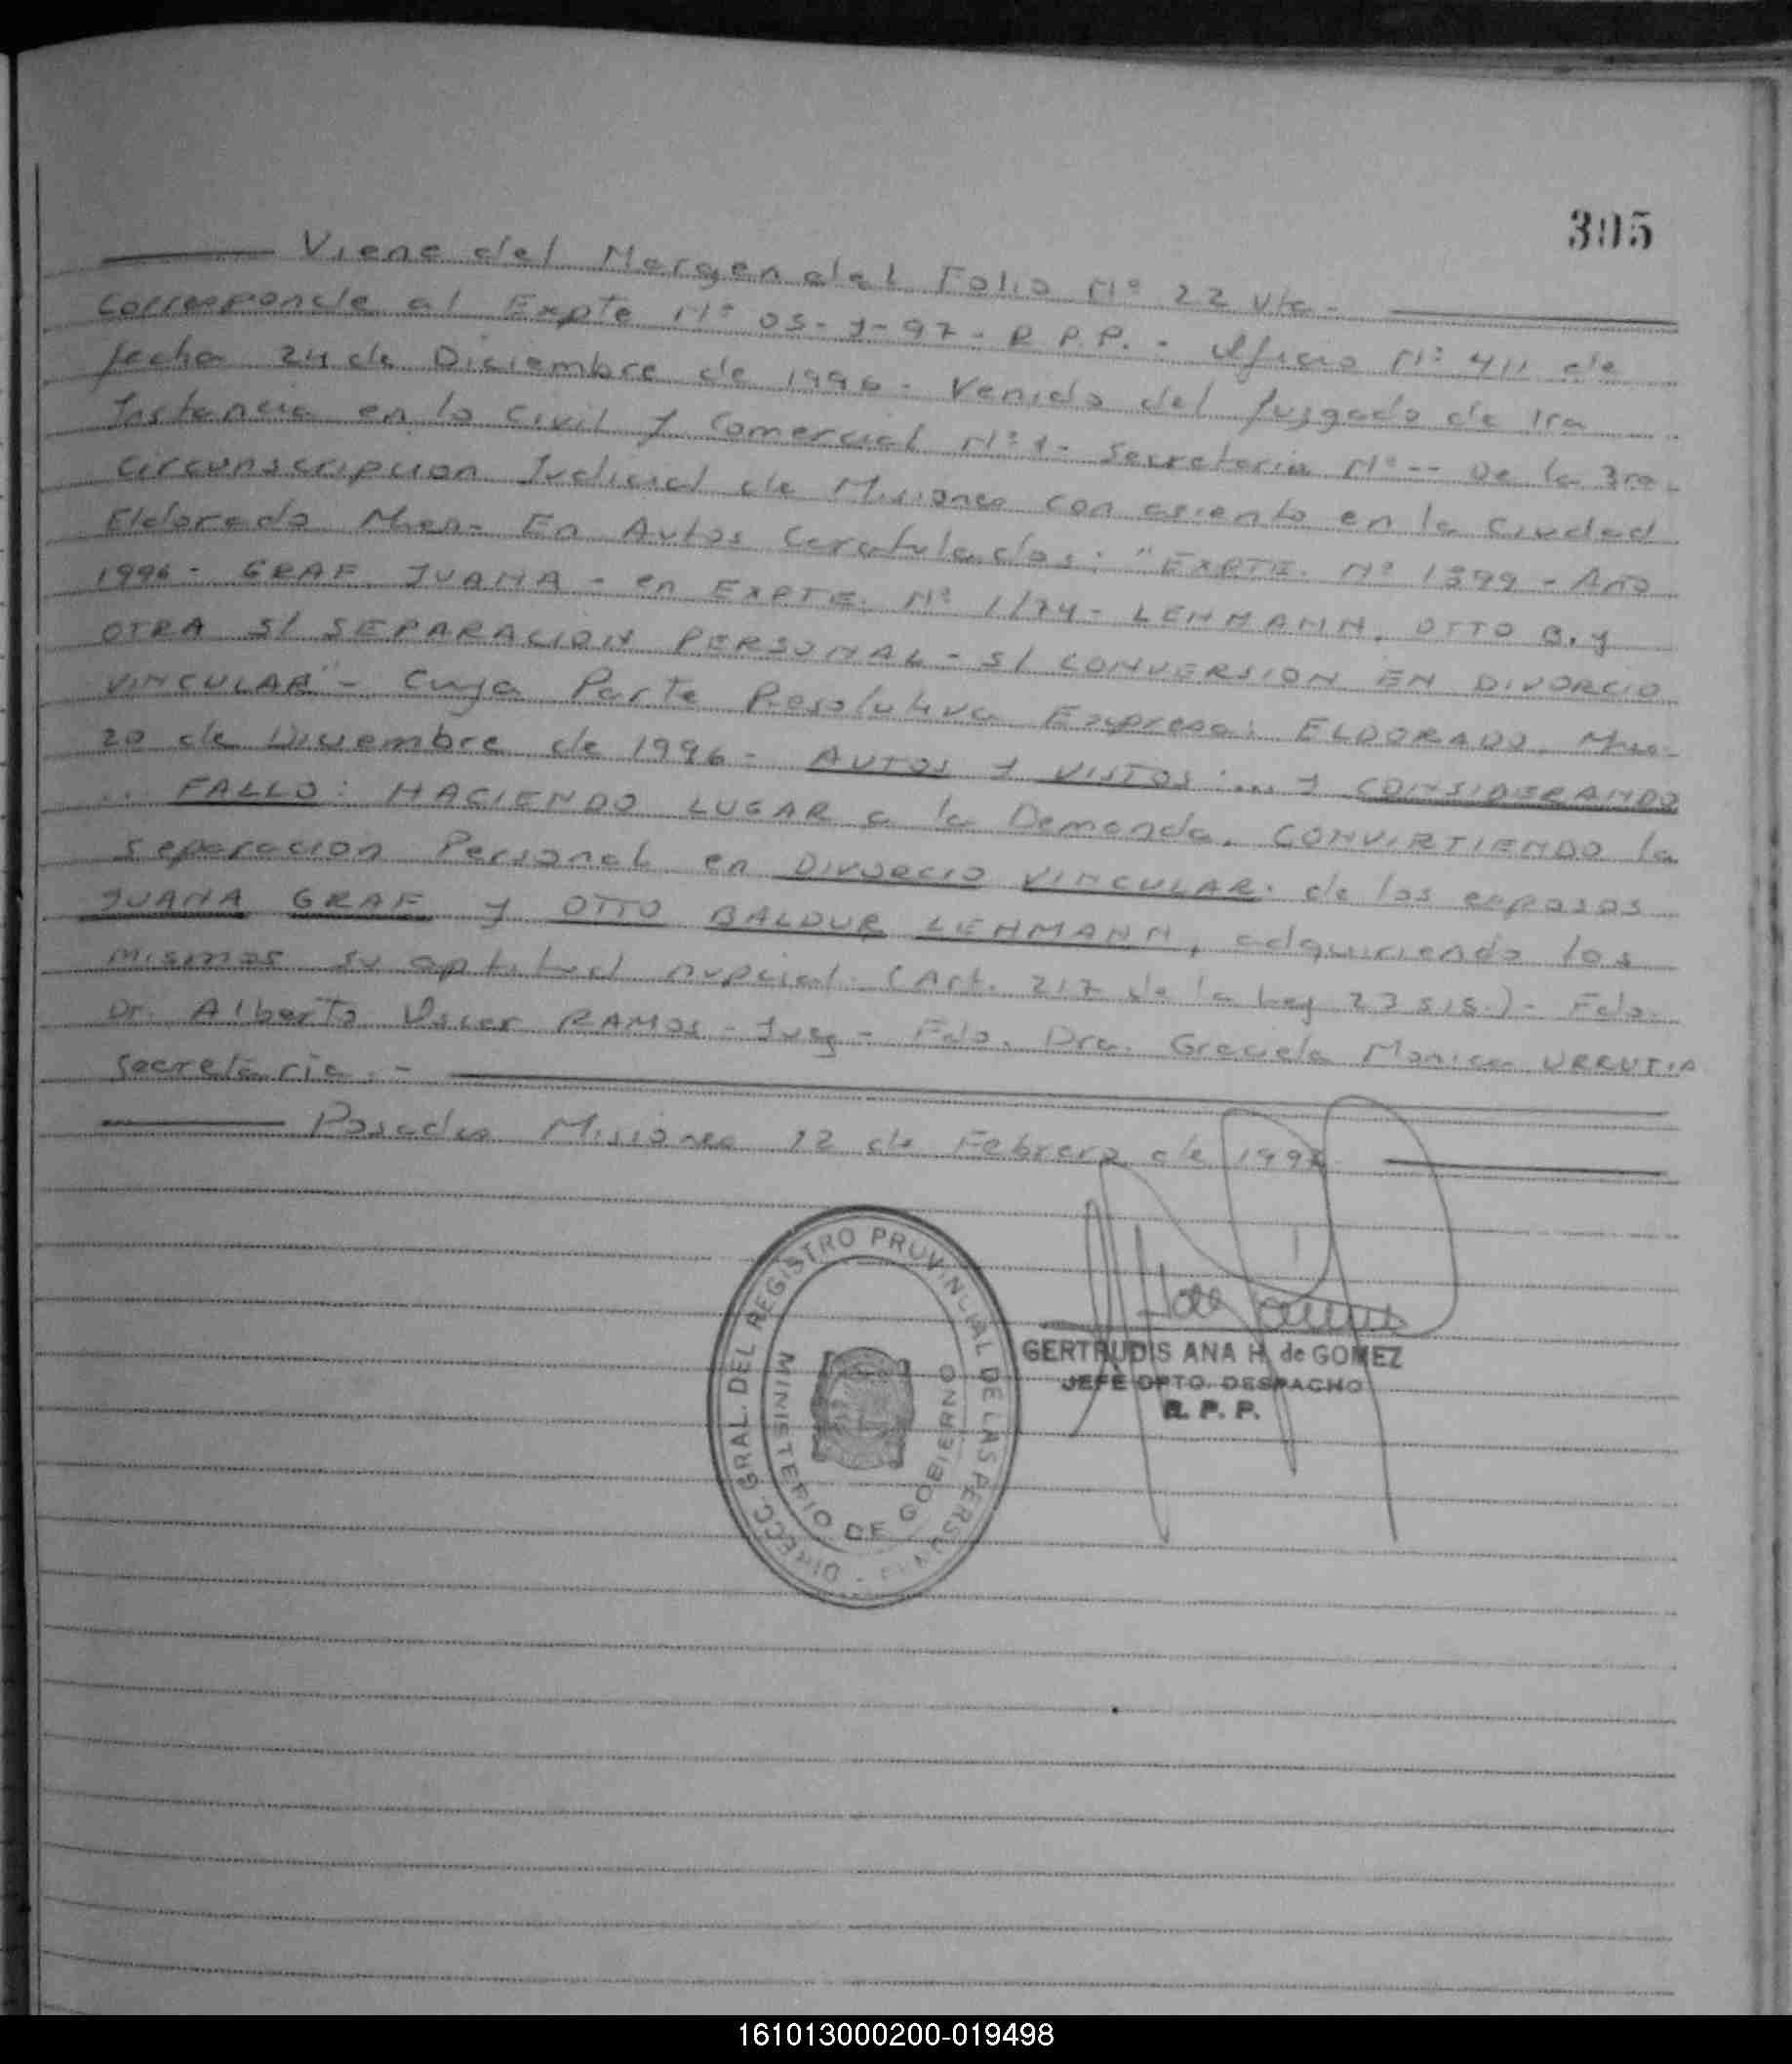 395
Viene del Margen del Folio Nº 22 vta.-
Corresponde al Expte Nº 05-J-97- R.P.P.- Oficio Nº 411 de
fecha 24 de Diciembre de 1996.- Venido del Juzgado de 1ra
Instancia en lo Civil y Comercial Nº 1- Secretaria Nº -- De la 3ra.
Circunscripcion Judicial de Misiones con asiento en la Ciudad
Eldorado Mnes.- En Autos Caratulados: "EXPTE. Nº 1399 - Año
1996- GRAF JUANA - en EXPTE. Nº 1/74- LEHMANN, OTTO B. y
OTRA S/ SEPARACION PERSONAL - S/ CONVERSION EN DIVORCIO
VINCULAR"- Cuya Parte Resolutiva Expresa: ELDORADO, Mnes.-
20 de Diciembre de 1996- AUTOS Y VISTOS:... Y CONSIDERANDO
.. FALLO: HACIENDO LUGAR a la Demanda, CONVIRTIENDO la
separacion Personal en DIVORCIO VINCULAR. de los esposos
JUANA GRAF y OTTO BALDUR LEHMANN, adquiriendo los
mismos su aptitud nupcial. (Art. 217 de la Ley 23515.)- Fdo.
Dr. Alberto Oscar RAMOS - Juez - Fdo. Dra. Graciela Monica URRUTIA
secretaria.-
Posadas Misiones 12 de Febrero de
DIRECC. GRAL. DEL REGISTRO PROVINCIAL DE LAS PERSONAS -
MINISTERIO DE GOBIERNO
H de Gomez
GERTRUDIS ANA H. de GOMEZ
JEFE DPTO. DESPACHO
R. P. P.
161013000200-019498